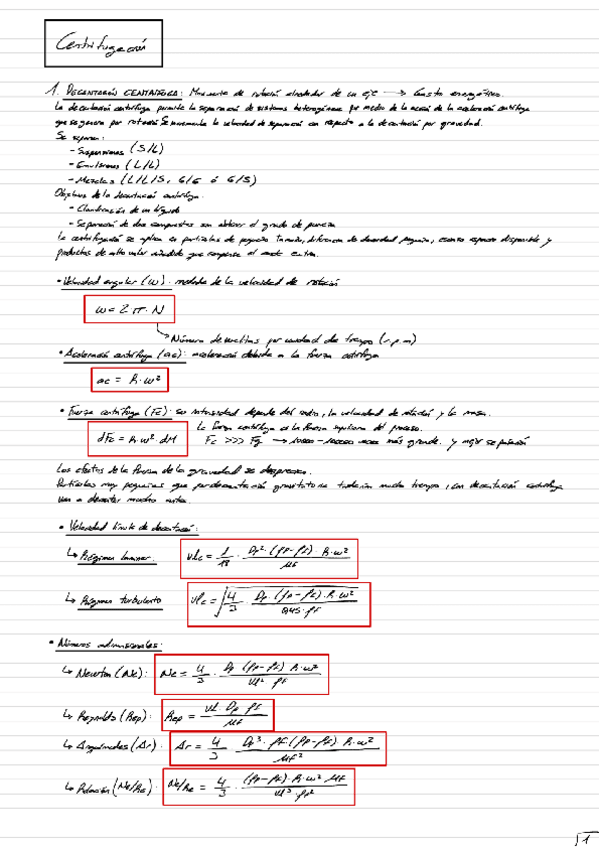 Centrifugación
1. DECANTACIÓN CENTRÍFUGA: Movimiento de rotación alrededor de un eje → Gasto energético.
La decantación centrífuga permite la separación de sistemas heterogéneos por medio de la acción de la aceleración centrífuga
que se genera por rotación. Se incrementa la velocidad de separación con respecto a la decantación por gravedad.
Se separan:
- Suspensiones (S/L)
- Emulsiones (L/L)
- Mezclas (L/L/S, G/G ó G/S)
Objetivos de la decantación centrífuga.
- Clarificación de un líquido
- Separación de dos compuestos sin obtener el grado de pureza
La centrifugación se aplica en partículas de pequeño tamaño, diferencia de densidad pequeña, escaso espacio disponible y
productos de alto valor añadido que compense el coste extra.
• Velocidad angular (ω): medida de la velocidad de rotación
ω = 2 π · N
Número de vueltas por unidad de tiempo (r.p.m)
• Aceleración centrífuga (ac): aceleración debida a la fuerza centrífuga
ac = R · ω²
• Fuerza centrífuga (Fc): su intensidad depende del radio, la velocidad de rotación y la masa.
dFc = R · ω² · dM
La fuerza centrífuga es la fuerza impulsora del proceso.
Fc >>> Fg → más grande. y mejor separación
Los efectos de la fuerza de la gravedad se desprecian.
Partículas muy pequeñas que por decantación gravitatoria tardarían mucho tiempo, con decantación centrífuga
van a decantar mucho antes.
• Velocidad límite de decantación:
↳ Régimen laminar. vlc = 1/18 · Dp² · (ρp - ρF) · R · ω² / μF
↳ Régimen turbulento vlc = √(4/3 · Dp · (ρp - ρF) · R · ω² / 0,45 · ρF)
• Números adimensionales:
↳ Newton (Ne): Ne = 4/3 · Dp (ρp - ρF) R · ω² / vl² ρF
↳ Reynolds (Rep): Rep = vl · Dp ρF / μF
↳ Arquímedes (Ar): Ar = 4/3 · Dp³ · ρF (ρp - ρF) R · ω² / μF²
↳ Relación (Ne/Re): Ne/Re = 4/3 · (ρp - ρF) · R · ω² μF / vl³ · ρF²
1